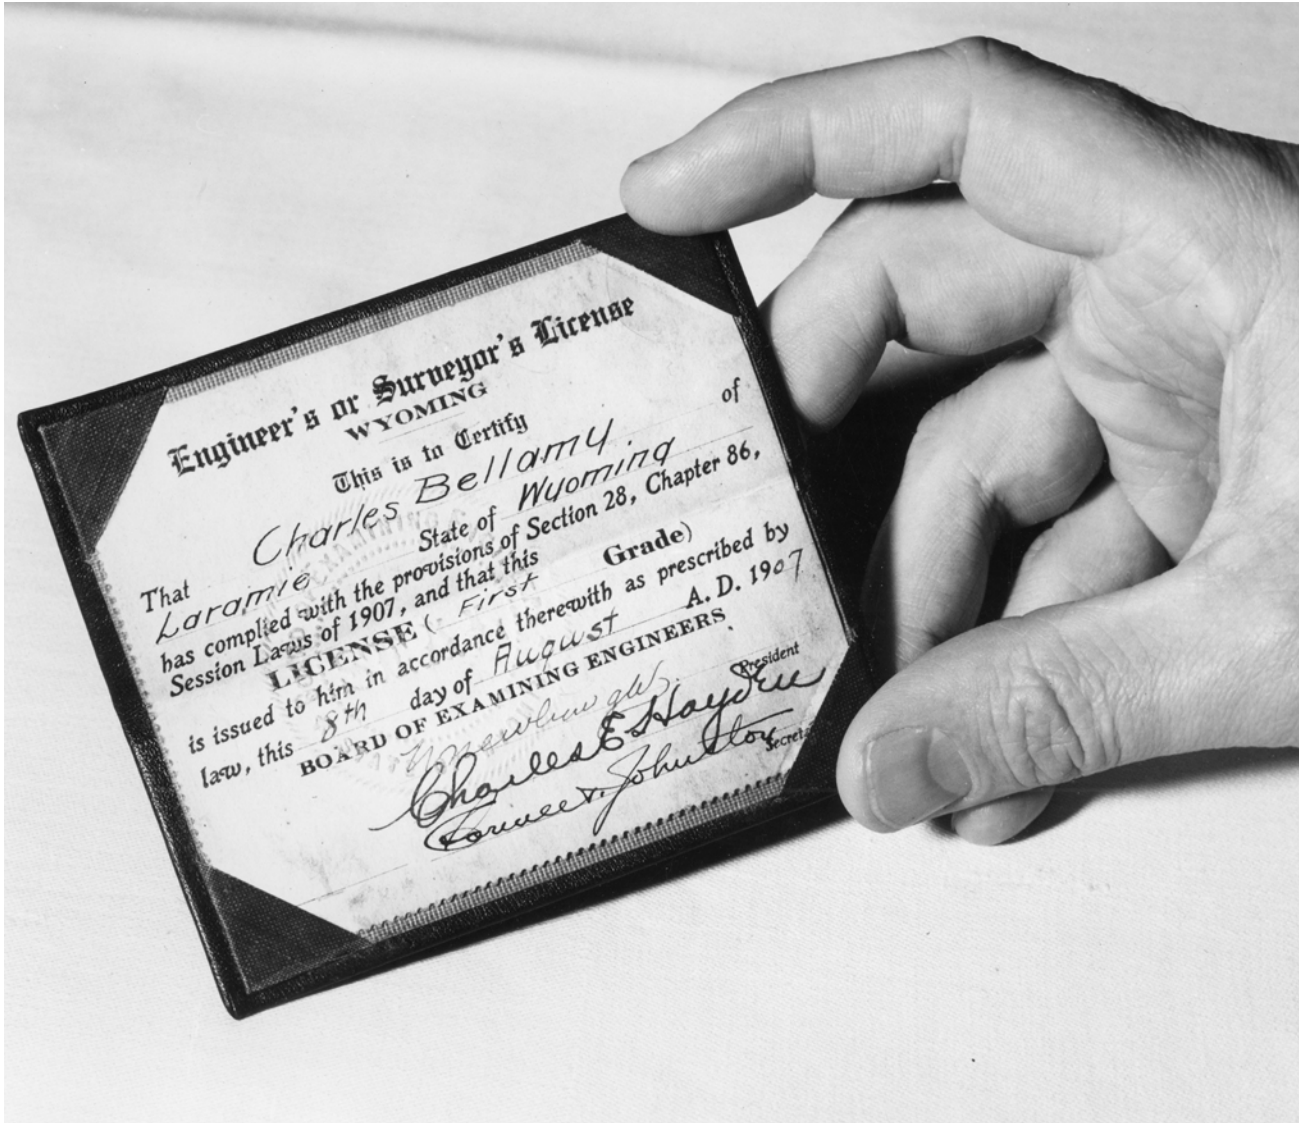 Engineer's or Surveyor's License
WYOMING
This is to Certify
That Charles Bellamy of
Laramie State of Wyoming
has complied with the provisions of Section 28, Chapter 86,
Session Laws of 1907, and that this
LICENSE (First Grade)
is issued to him in accordance therewith as prescribed by
law, this 8th day of August A. D. 1907
BOARD OF EXAMINING ENGINEERS.
President
Charles E Hayden
Johnston